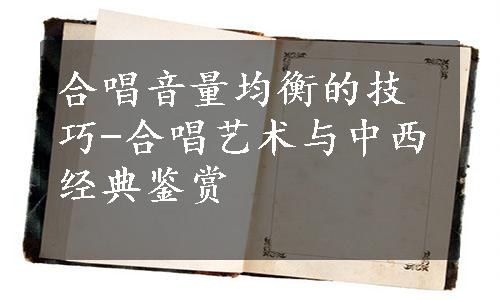 合唱音量均衡的技
巧-合唱艺术与中西
经典鉴赏